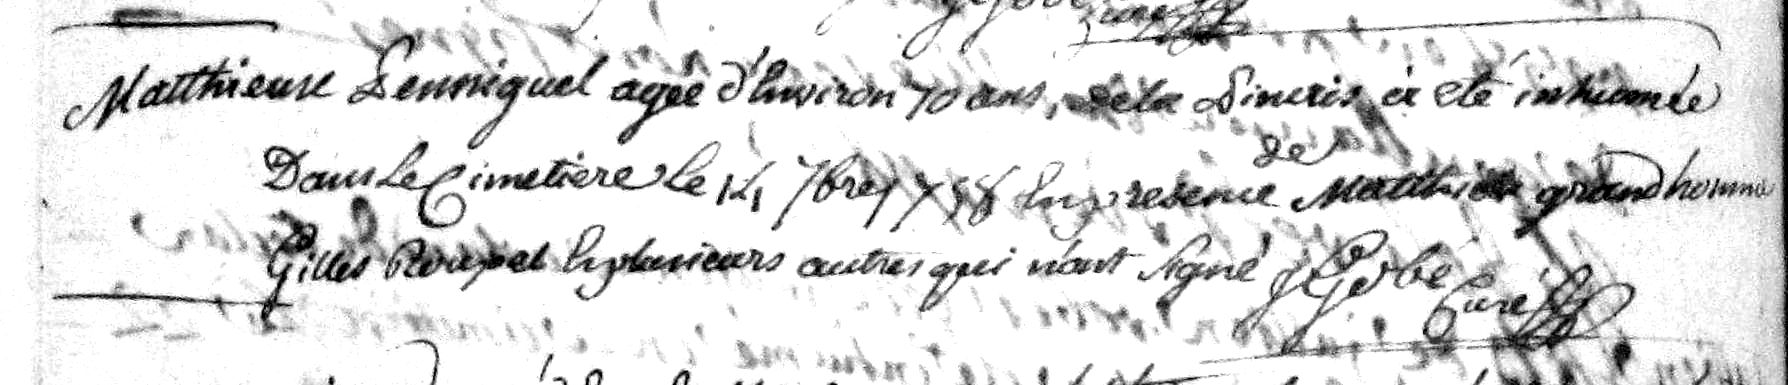 Matthieuse Lemniguel agée d'Environ 70 ans, dela a eté inhumée
Dans Le Cimetière le 14 7bre 1758 En presence de Matthieu grandhomme
Gilles Roupel Et plusieurs autres qui n'ont signé J Gobé
Curé